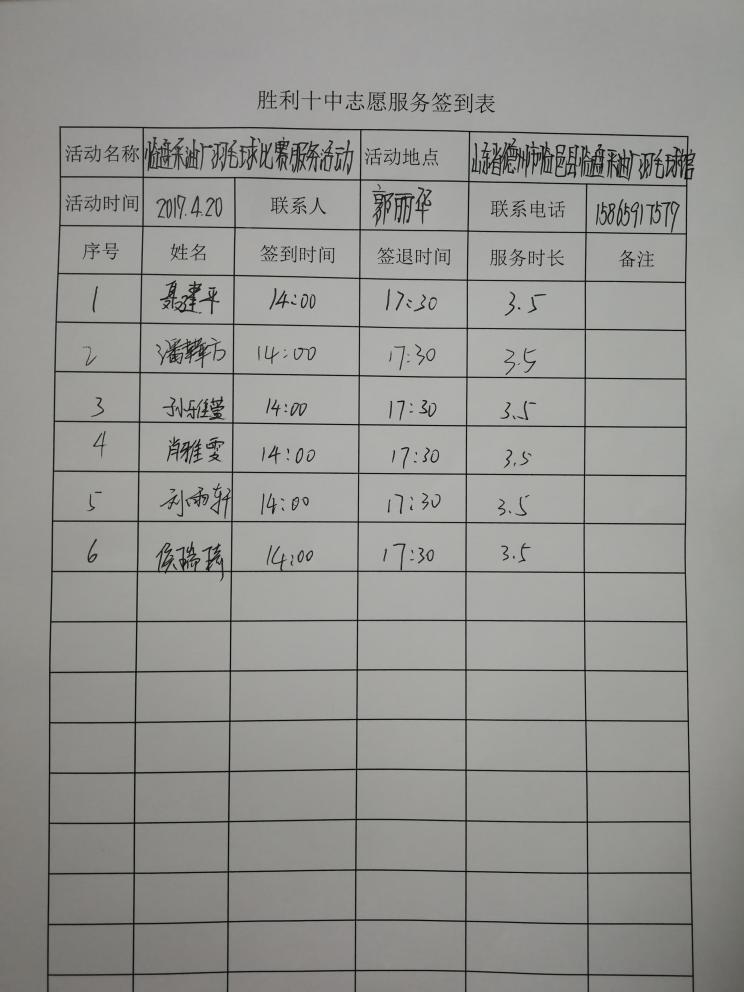 胜利十中志愿服务签到表
活动名称 临盘采油厂羽毛球比赛服务活动 活动地点 山东省德州市临邑县临盘采油厂羽毛球馆
活动时间 2019.4.20 联系人 郭丽华 联系电话 15865917579
序号 姓名 签到时间 签退时间 服务时长 备注
1 聂建平 14:00 17:30 3.5
2 潘 方 14:00 17:30 3.5
3 孙雅萱 14:00 17:30 3.5
4 肖雅雯 14:00 17:30 3.5
5 刘雨轩 14:00 17:30 3.5
6 侯瑞琦 14:00 17:30 3.5